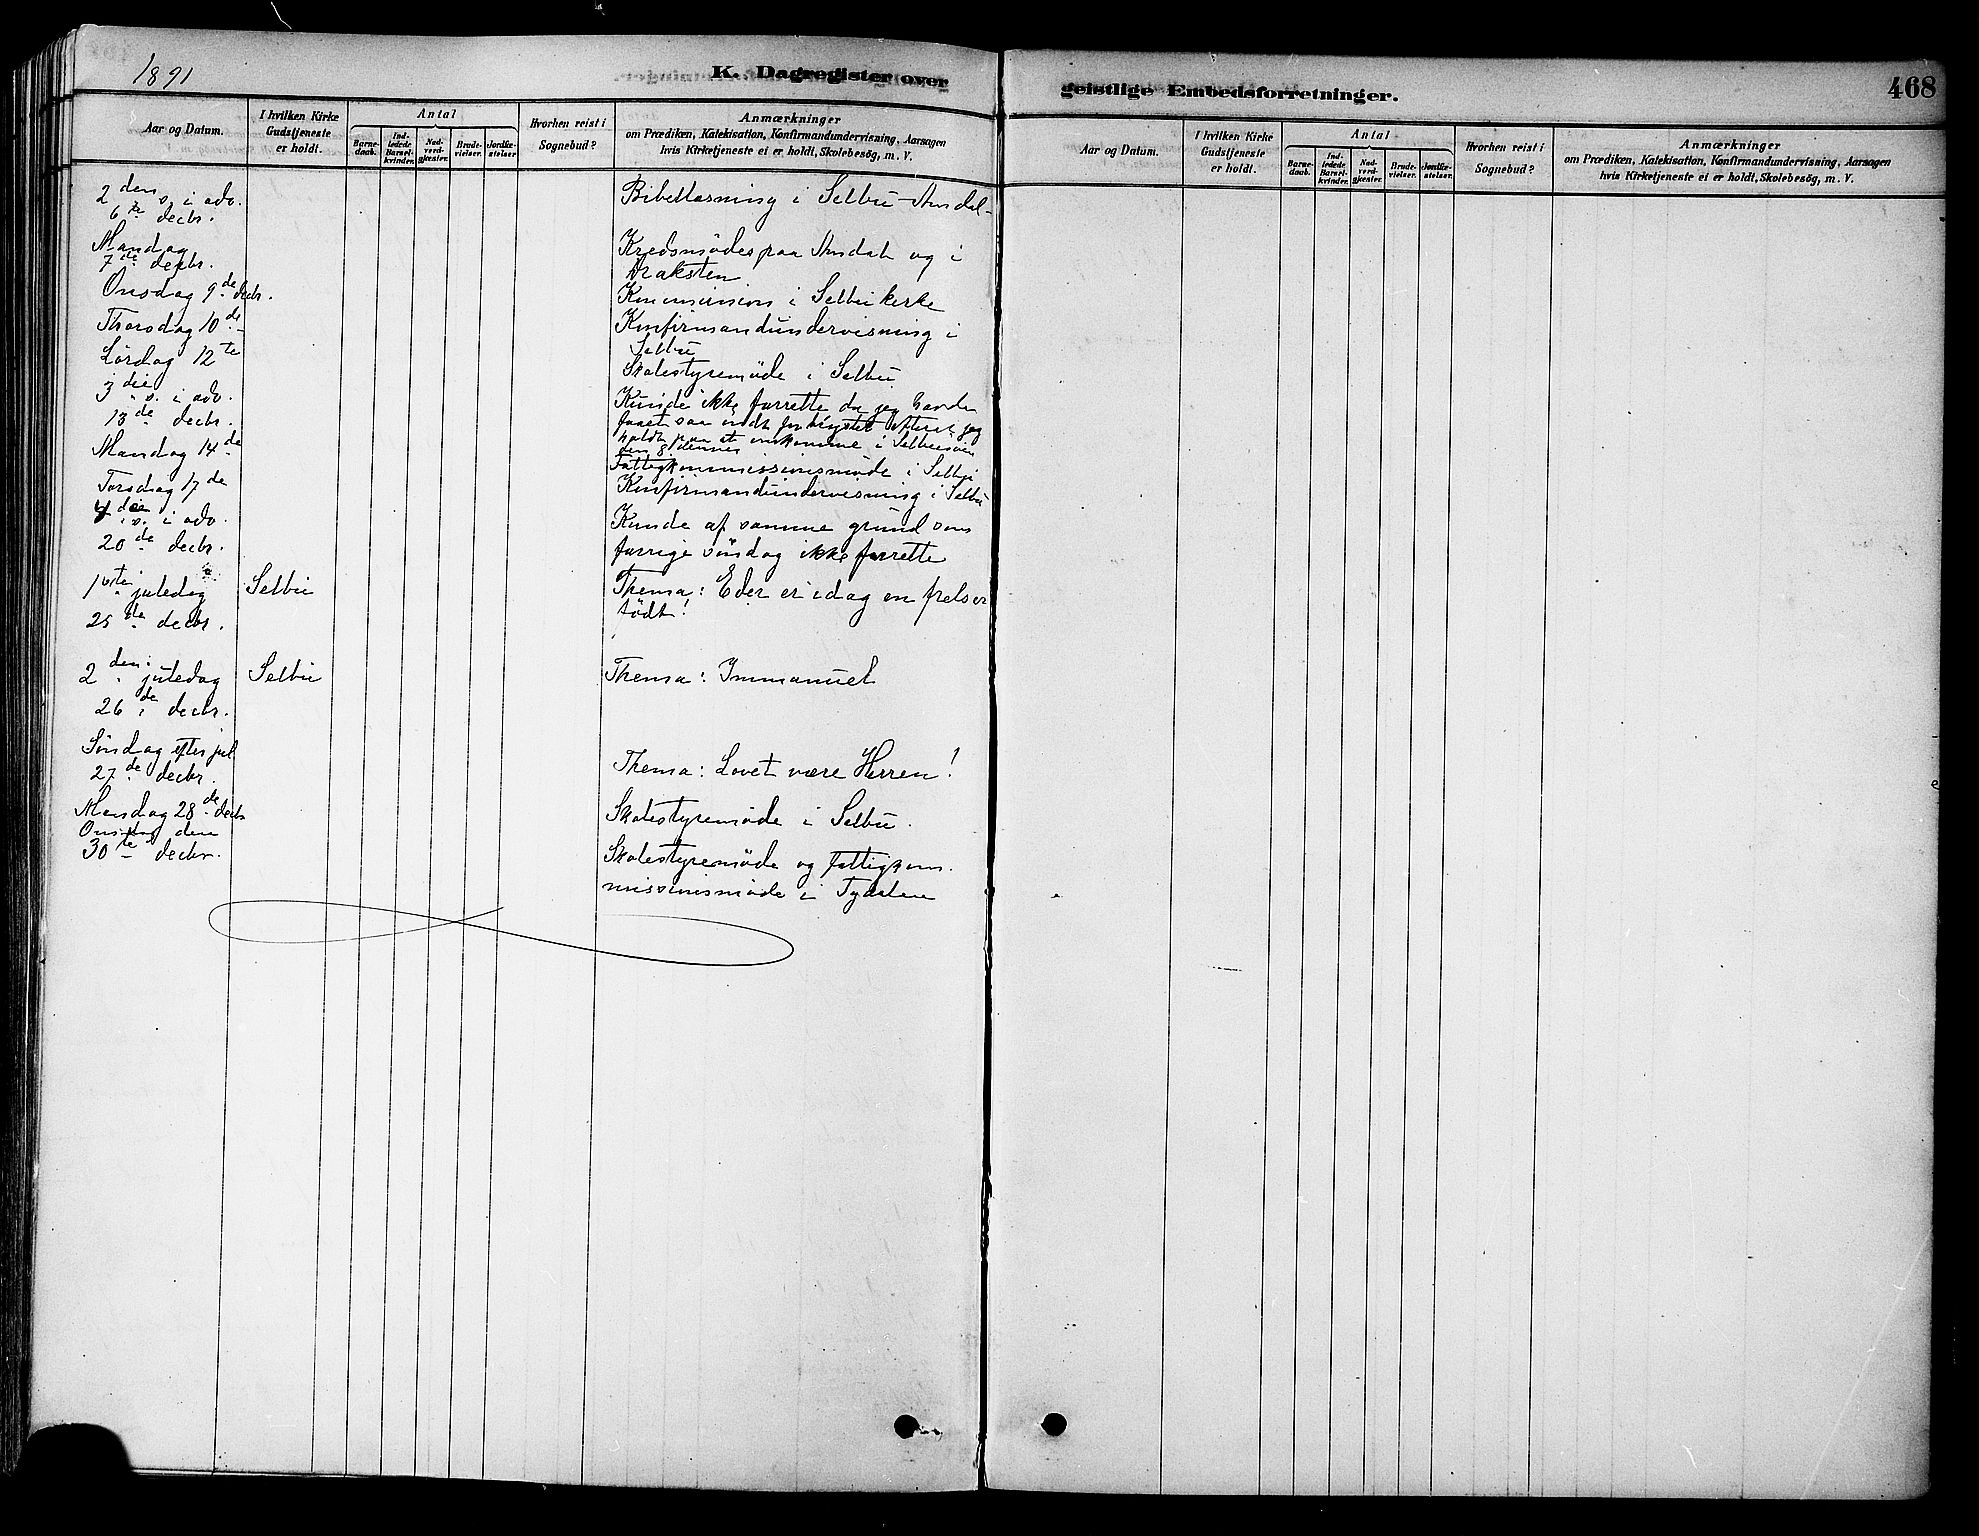 1891
K. Dagregister over
geistlige Embedsforretninger.
468
Aar og Datum.
I hvilken Kirke Gudstjeneste er holdt.
Antal
Barnedaab.
Indledede Barselkvinder.
Nadverdgjester.
Brudevielser.
Jordfæstelser.
Hvorhen reist i Sognebud?
Anmærkninger
om Prædiken, Katekisation, Konfirmandundervisning, Aarsagen
hvis Kirketjeneste ei er holdt, Skolebesög, m. V.
2den s. i adv.
6te decbr.
Bibellæsning i Selbu
Mandag
7de decbr.
Kredsmöde paa og i
Draksten
Onsdag 9de decbr.
i Selbu kirke
Thorsdag 10de
Konfirmandundervisning i
Selbu
Lördag 12te
Skolestyremöde i Selbu
3die s. i adv.
13de decbr.
Kunde ikke forrette da jeg havde
faaet saa ondt for brystet efterat jeg
holdt paa at omkomme i Selbusöen
den 8 dennes
Mandag 14de
Fattigkommissionsmöde i Selbu
Torsdag 17de
Konfirmandundervisning i Selbu
4die s. i adv.
20de decbr.
Kunde af samme grund som
forrige söndag ikke forrette
1ste juledag
25de decbr.
Selbu
Thema: Eder er idag en frelser
födt!
2den juledag
26de decbr.
Selbu
Thema: Immanuel
Söndag efter jul
27de decbr.
Thema: Lovet være Herren!
Mandag 28de decbr
Skolestyremöde i Selbu.
Onsdag den
30te decbr.
Skolestyremöde og fattigkom
missionsmöde i Tydalen
Aar og Datum.
I hvilken Kirke Gudstjeneste er holdt.
Antal
Barnedaab.
Indledede Barselkvinder.
Nadverdgjester.
Brudevielser.
Jordfæstelser.
Hvorhen reist i Sognebud?
Anmærkninger
om Prædiken, Katekisation, Konfirmandundervisning, Aarsagen
hvis Kirketjeneste ei er holdt, Skolebesög, m. V.